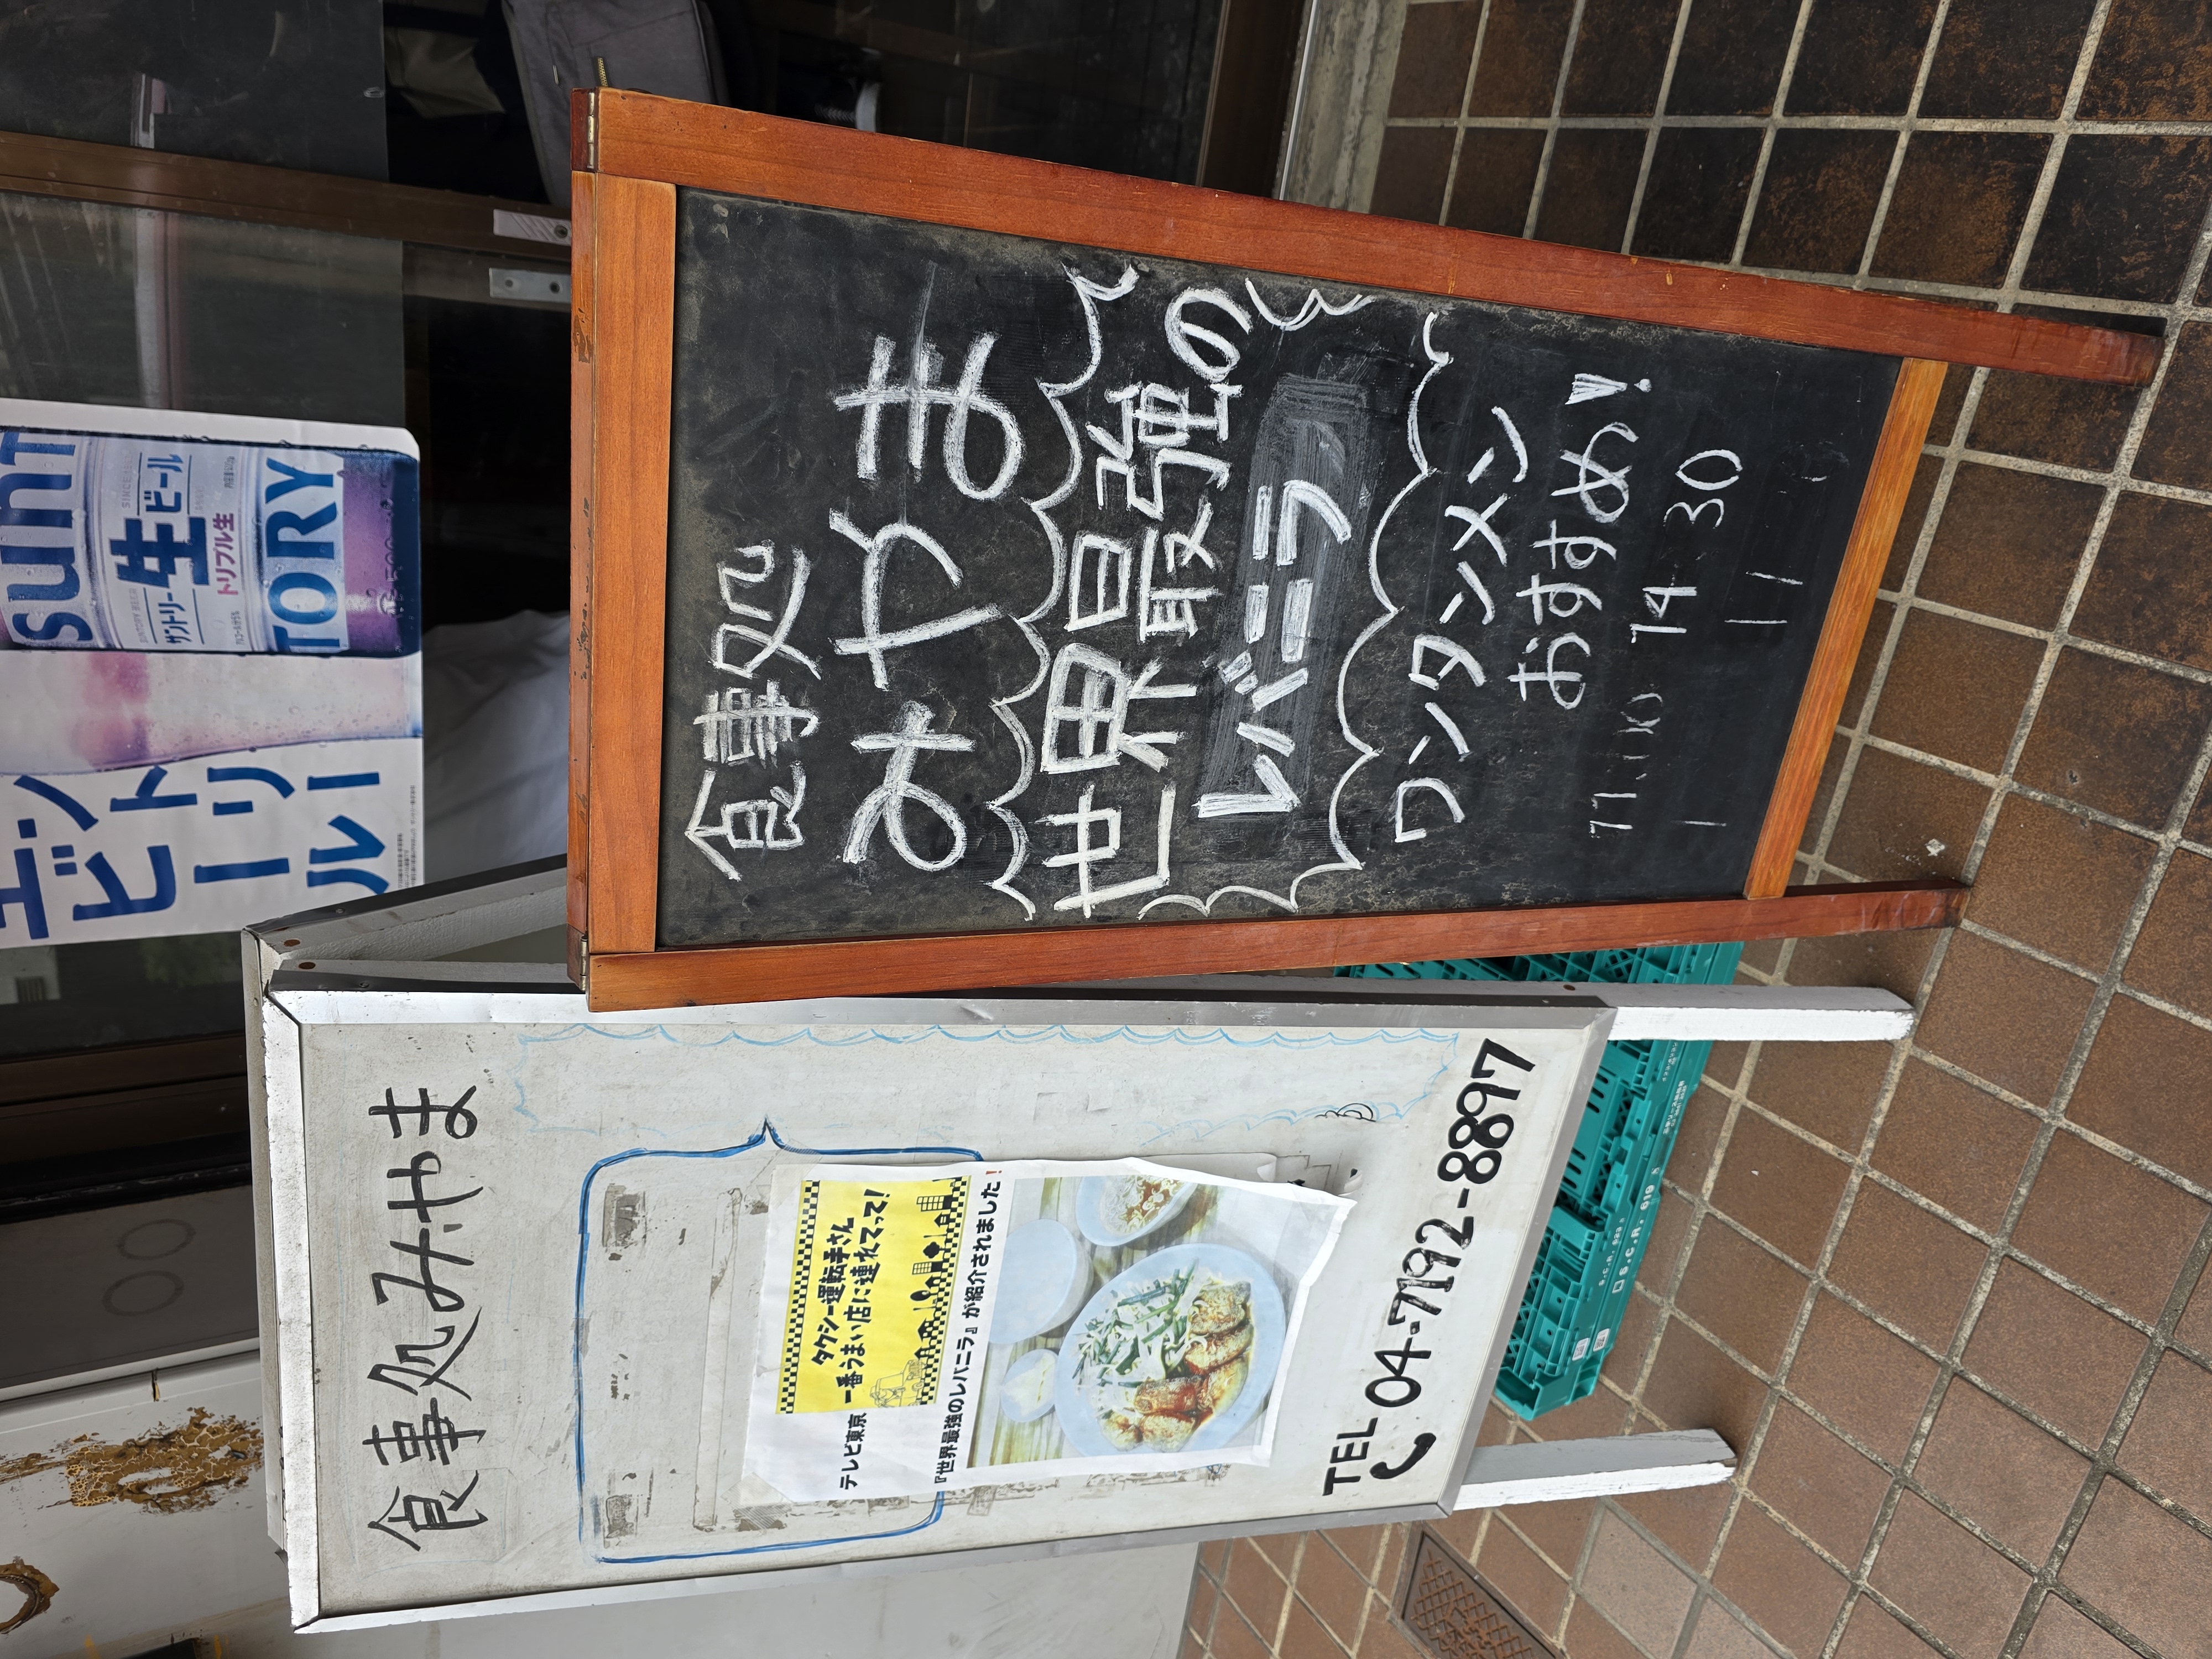 食事処
みやま
世界最強の
レバニラ
ワンタンメン
おすすめ!
14 30
食事処みやま
テレビ東京
タクシー運転手さん
一番うまい店に連れてって!
『世界最強のレバニラ』が紹介されました!
TEL 04-7192-8897
SUNTORY
サントリー生ビール
トリプル生
S.C.R. 619